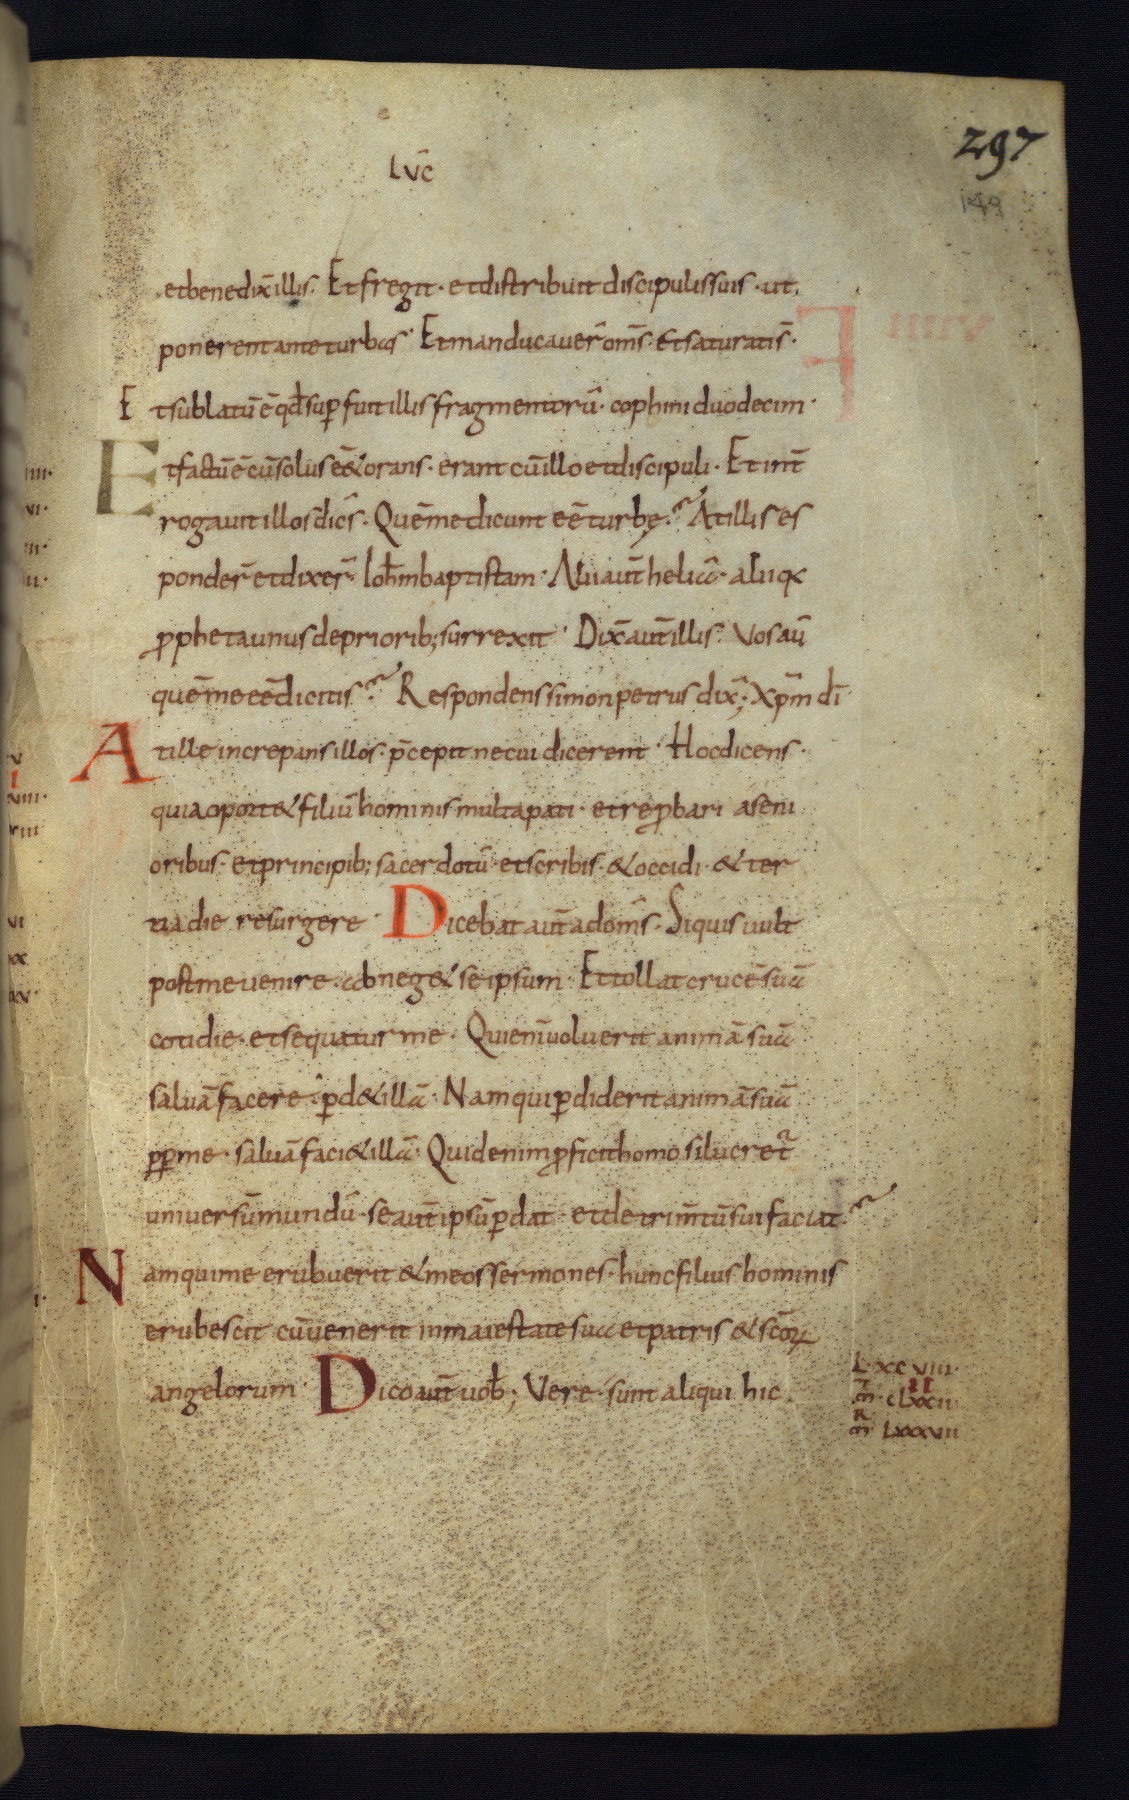 297
149
LVC̄
et benedix̄ illis. Et fregit · et distribuit discipulis suis · ut
ponerent ante turbas · Et manducaver̄ oms̄ · Et saturatis̄ ·
Et sublatū ē qd̄ sup̱fuit illis fragmentorū · cophini duodecim ·
Et factū ē cū solus eēt orans · erant cū illo et discipuli · Et int̄
rogavit illos dicēs · Quē me dicunt eē turbę? At illi s es
ponder̄ et dixer̄ · Ioh̄m baptistam · Alii aut̄ heliā · alii qa
ꝓpheta unus de priorib; surrexit · Dix̄ aut̄ illis · Vos aū
quē me eē dicitis? Respondens simon petrus dix̄; Xp̄m dī
At ille increpans illos · p̄cepit ne cui dicerent · Hoc dicens ·
quia oport& filiū hominis multa pati · et reꝓbari a seni
oribus · et principib; sacerdotū · et scribis · & occidi · & ter
tia die resurgere · Dicebat aut̄ ad oms̄ · Si quis vult
post me venire · abneg& se ipsum · Et tollat crucē suā
cotidie · et sequatur me · Qui enī voluerit animā suā
salvā facere · ꝑd& illā · Nam qui ꝑdiderit animā suā
ꝓp̱ me · salvā faci& illā · Quid enim ꝓficit homo si lucret̄
universū mundū · se aut̄ ipsū ꝑdat · et detrim̄tū sui faciat?
Nam qui me erubuerit & meos sermones · hunc filius hominis
erubescit cū venerit in maiestate sua et patris & scōꝝ
angelorum · Dico aut̄ vob̄; Vere · sunt aliqui hic
L · XCVIII ·
m̄ · CLXXII ·
R
m̄ LXXXVII